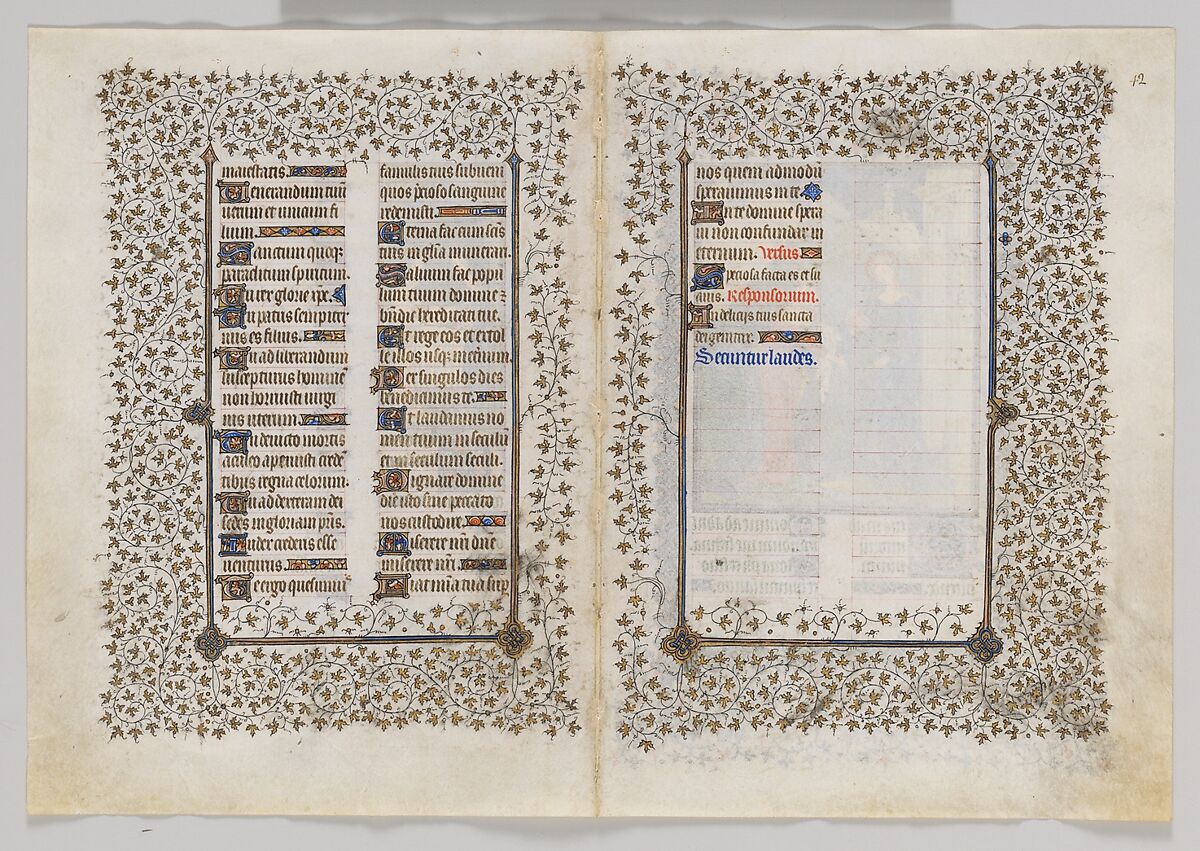 maiestatis.
Venerandum tuū
uerum et unicum fi
lium.
Sanctum quoq;
paraclitum spiritum.
Tu rex glorie xp̄e.
Tu patris sempiter
nus es filius.
Tu ad liberandum
suscepturus hominē
non horruisti uirgi
nis uterum.
Tu deuicto mortis
aculeo aperuisti credē
tibus regna celorum.
Tu ad dexteram dei
sedes in gloriam pr̄is.
Iudex crederis esse
uenturus.
Te ergo quesumus
famulis tuis subueni
quos p̄cioso sanguine
redemisti.
Eterna fac cum sc̄is
tuis in gl̄ia numerari.
Saluum fac popu
lum tuum domine ⁊
bn̄dic hereditati tue.
Et rege eos et extol
le illos usq; in eternum.
Per singulos dies
benedicimus te.
Et laudamus no
men tuum in seculū
et in seculum seculi.
Dignare domine
die isto sine peccato
nos custodire.
Miserere nr̄i dn̄e
miserere nr̄i.
Fiat mīa tua sup̄
42
nos quem admodū
sperauimus in te.
In te domine spera
ui non confundar in
eternum. Versus.
Speciosa facta es et su
auis. Responsorium.
In delicijs tuis sancta
dei genitrix.
Secuntur laudes.